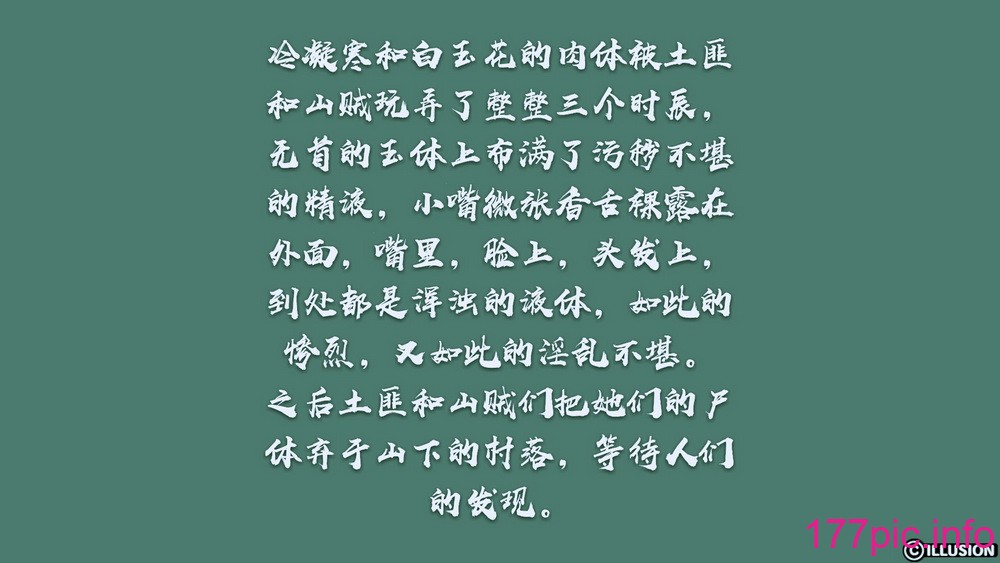 冷凝寒和白玉花的肉体被土匪
和山贼玩弄了整整三个时辰，
无首的玉体上布满了污秽不堪
的精液，小嘴微张香舌裸露在
外面，嘴里，脸上，头发上，
到处都是浑浊的液体，如此的
惨烈，又如此的淫乱不堪。
之后土匪和山贼们把她们的尸
体弃于山下的村落，等待人们
的发现。
177pic.info
©ILLUSION